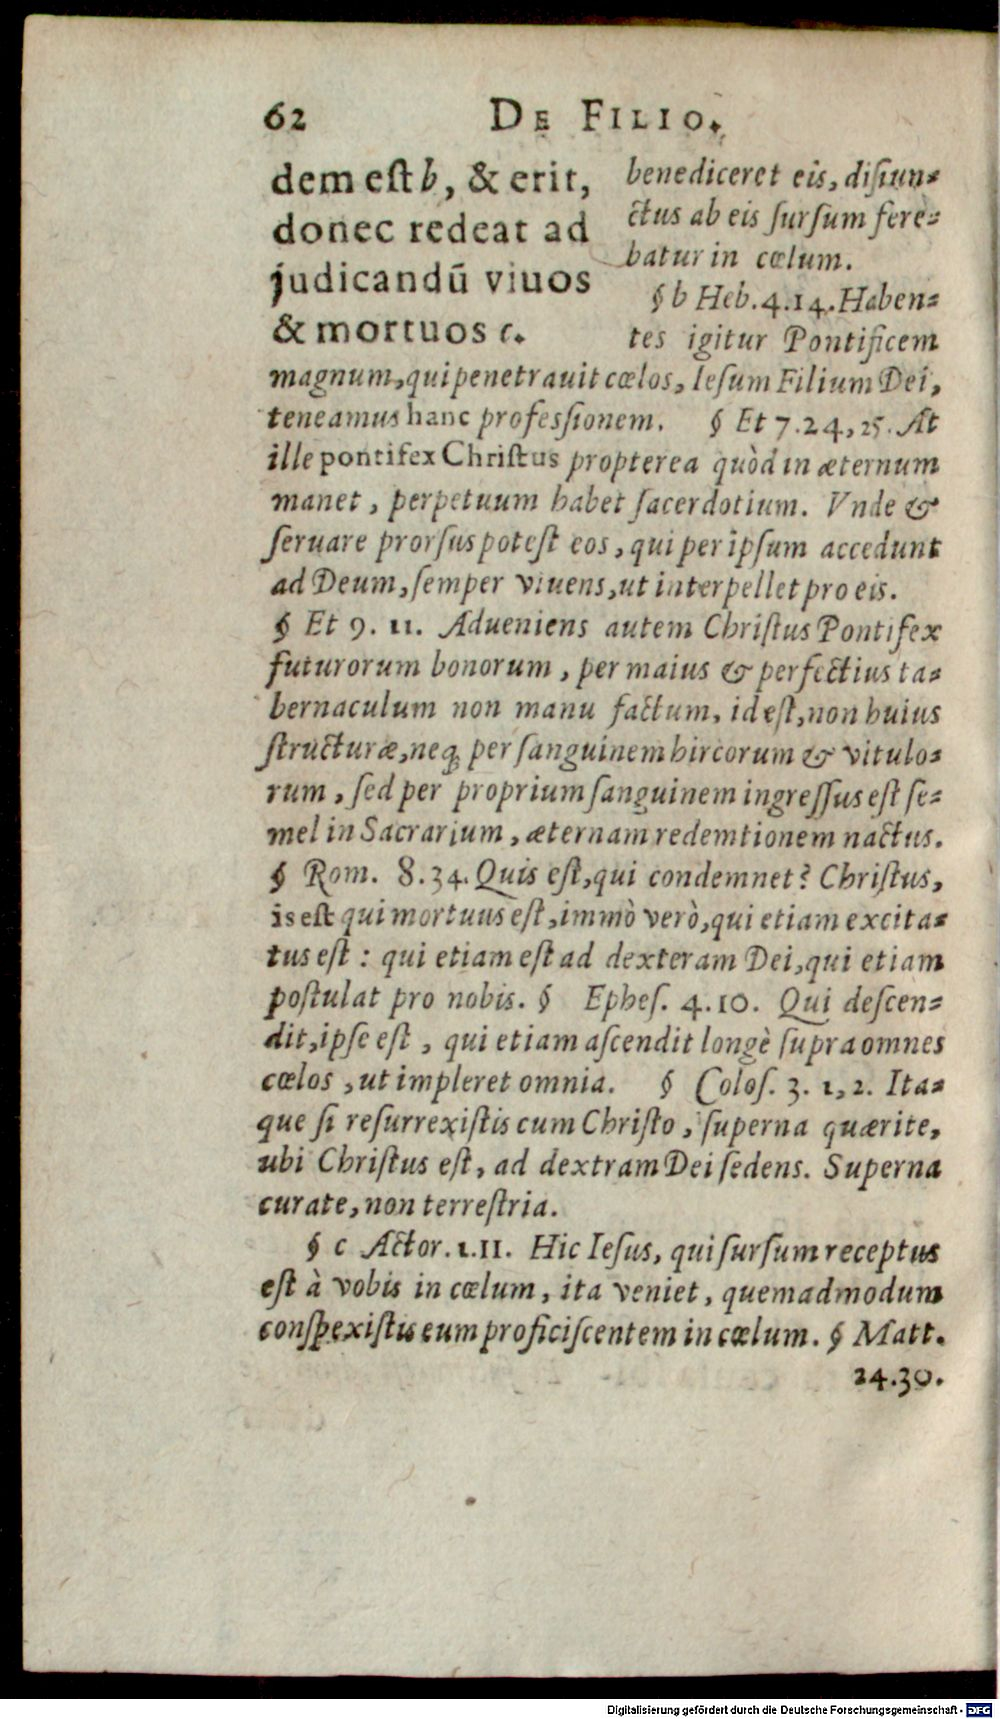 62 DE FILIO.
dem eſt b, & erit,
donec redeat ad
judicandū viuos
& mortuos c.
benediceret eis, diſiun-
ctus ab eis ſurſum fere-
batur in cœlum.
§ b Heb. 4.14. Haben-
tes igitur Pontificem
magnum, qui penetravit cœlos, Ieſum Filium Dei,
teneamus hanc profeſsionem. § Et 7.24, 25. At
ille pontifex Chriſtus propterea quòd in æternum
manet, perpetuum habet ſacerdotium. Vnde &
ſeruare prorſus poteſt eos, qui per ipſum accedunt
ad Deum, ſemper viuens, ut interpellet pro eis.
§ Et 9. 11. Adueniens autem Chriſtus Pontifex
futurorum bonorum, per maius & perfectius ta-
bernaculum non manu factum, id eſt, non huius
ſtructuræ, neq; per ſanguinem hircorum & vitulo-
rum, ſed per proprium ſanguinem ingreſſus eſt ſe-
mel in Sacrarium, æternam redemtionem nactus.
§ Rom. 8.34. Quis eſt, qui condemnet? Chriſtus,
is eſt qui mortuus eſt, immò verò, qui etiam excita-
tus eſt: qui etiam eſt ad dexteram Dei, qui etiam
poſtulat pro nobis. § Epheſ. 4.10. Qui deſcen-
dit, ipſe eſt, qui etiam aſcendit longè ſupra omnes
cœlos, ut impleret omnia. § Coloſ. 3. 1, 2. Ita-
que ſi reſurrexiſtis cum Chriſto, ſuperna quærite,
ubi Chriſtus eſt, ad dextram Dei ſedens. Superna
curate, non terreſtria.
§ c Actor. 1.11. Hic Ieſus, qui ſurſum receptus
eſt à vobis in cœlum, ita veniet, quemadmodum
conſpexiſtis eum proficiſcentem in cœlum. § Matt.
24.30.
Digitalisierung gefördert durch die Deutsche Forschungsgemeinschaft - DFG